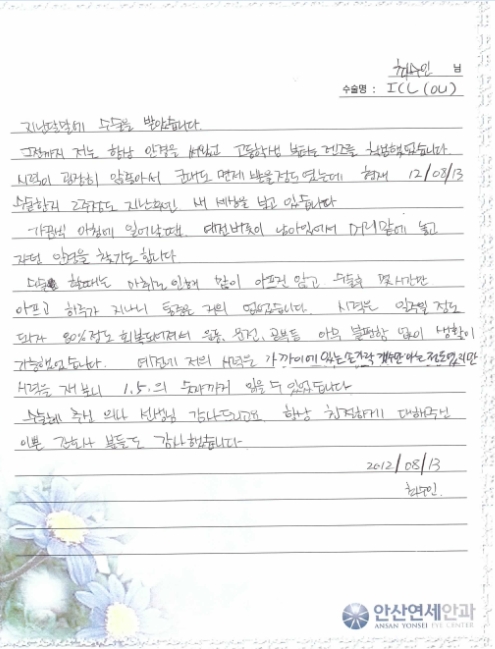 최수인 님
수술명 : ICL (OU)
지난달말에 수술을 받았습니다.
그전까지 저는 항상 안경을 써왔고 고등학생 부터는 렌즈를 착용해왔습니다.
시력이 굉장히 안좋아서 군대도 면제 받을정도 였는데 현재 12/08/13
수술한지 2주정도 지난 새 세상을 보고 있습니다
가끔씩 아침에 일어날때. 예전버릇이 남아있어서 머리맡에 놓고
자던 안경을 찾기도 합니다
수술 할때는 마취로 인해 많이 아프진 않고 수술후 몇시간만
아프고 하루가 지나니 통증은 거의 없었습니다. 시력은 일주일 정도
되자 80%정도 회복되어져서 운동, 운전, 공부등 아무 불편함 없이 생활이
가능했었습니다. 예전에 저의 시력은 가까이에 있는 손가락 개수만 아는 정도였지만
시력을 재보니 1.5.의 숫자까지 읽을 수 있었습니다
수술해 주신 의사 선생님 감사드리고요. 항상 친절하게 대해주신
이쁜 간호사 분들도 감사했습니다.
2012/08/13
최수인.
안산연세안과
ANSAN YONSEI EYE CENTER